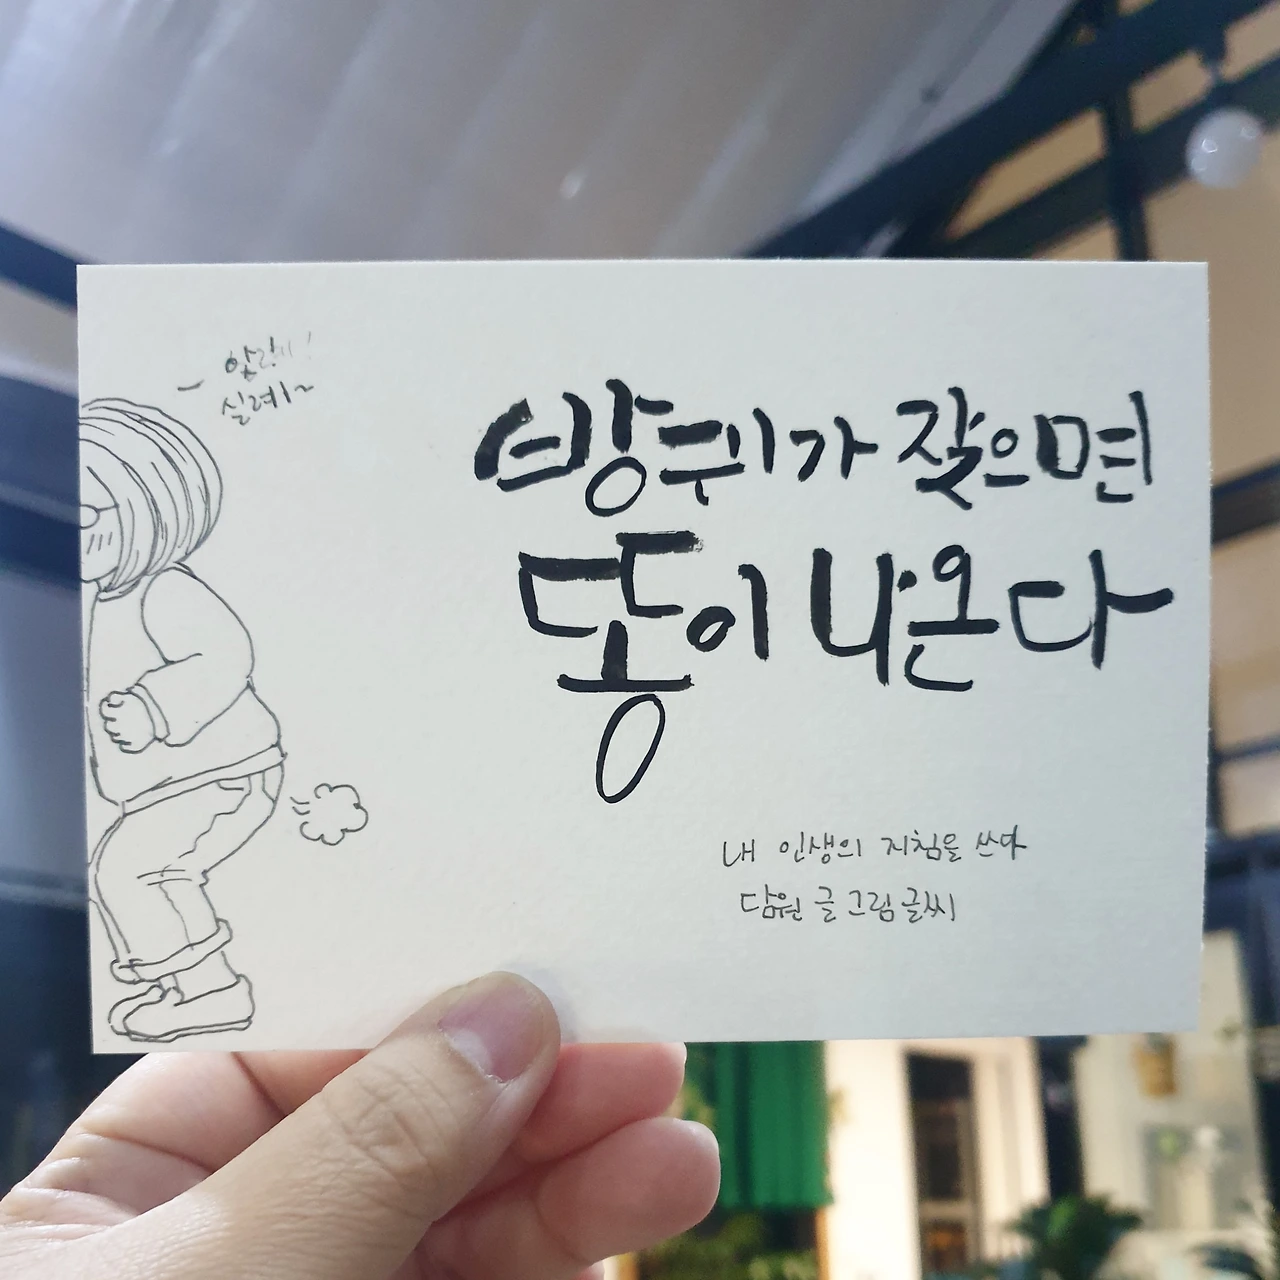 실례~
방귀가 잦으면
똥이 나온다
내 인생의 지침을 쓰다
담원 글 그림 글씨